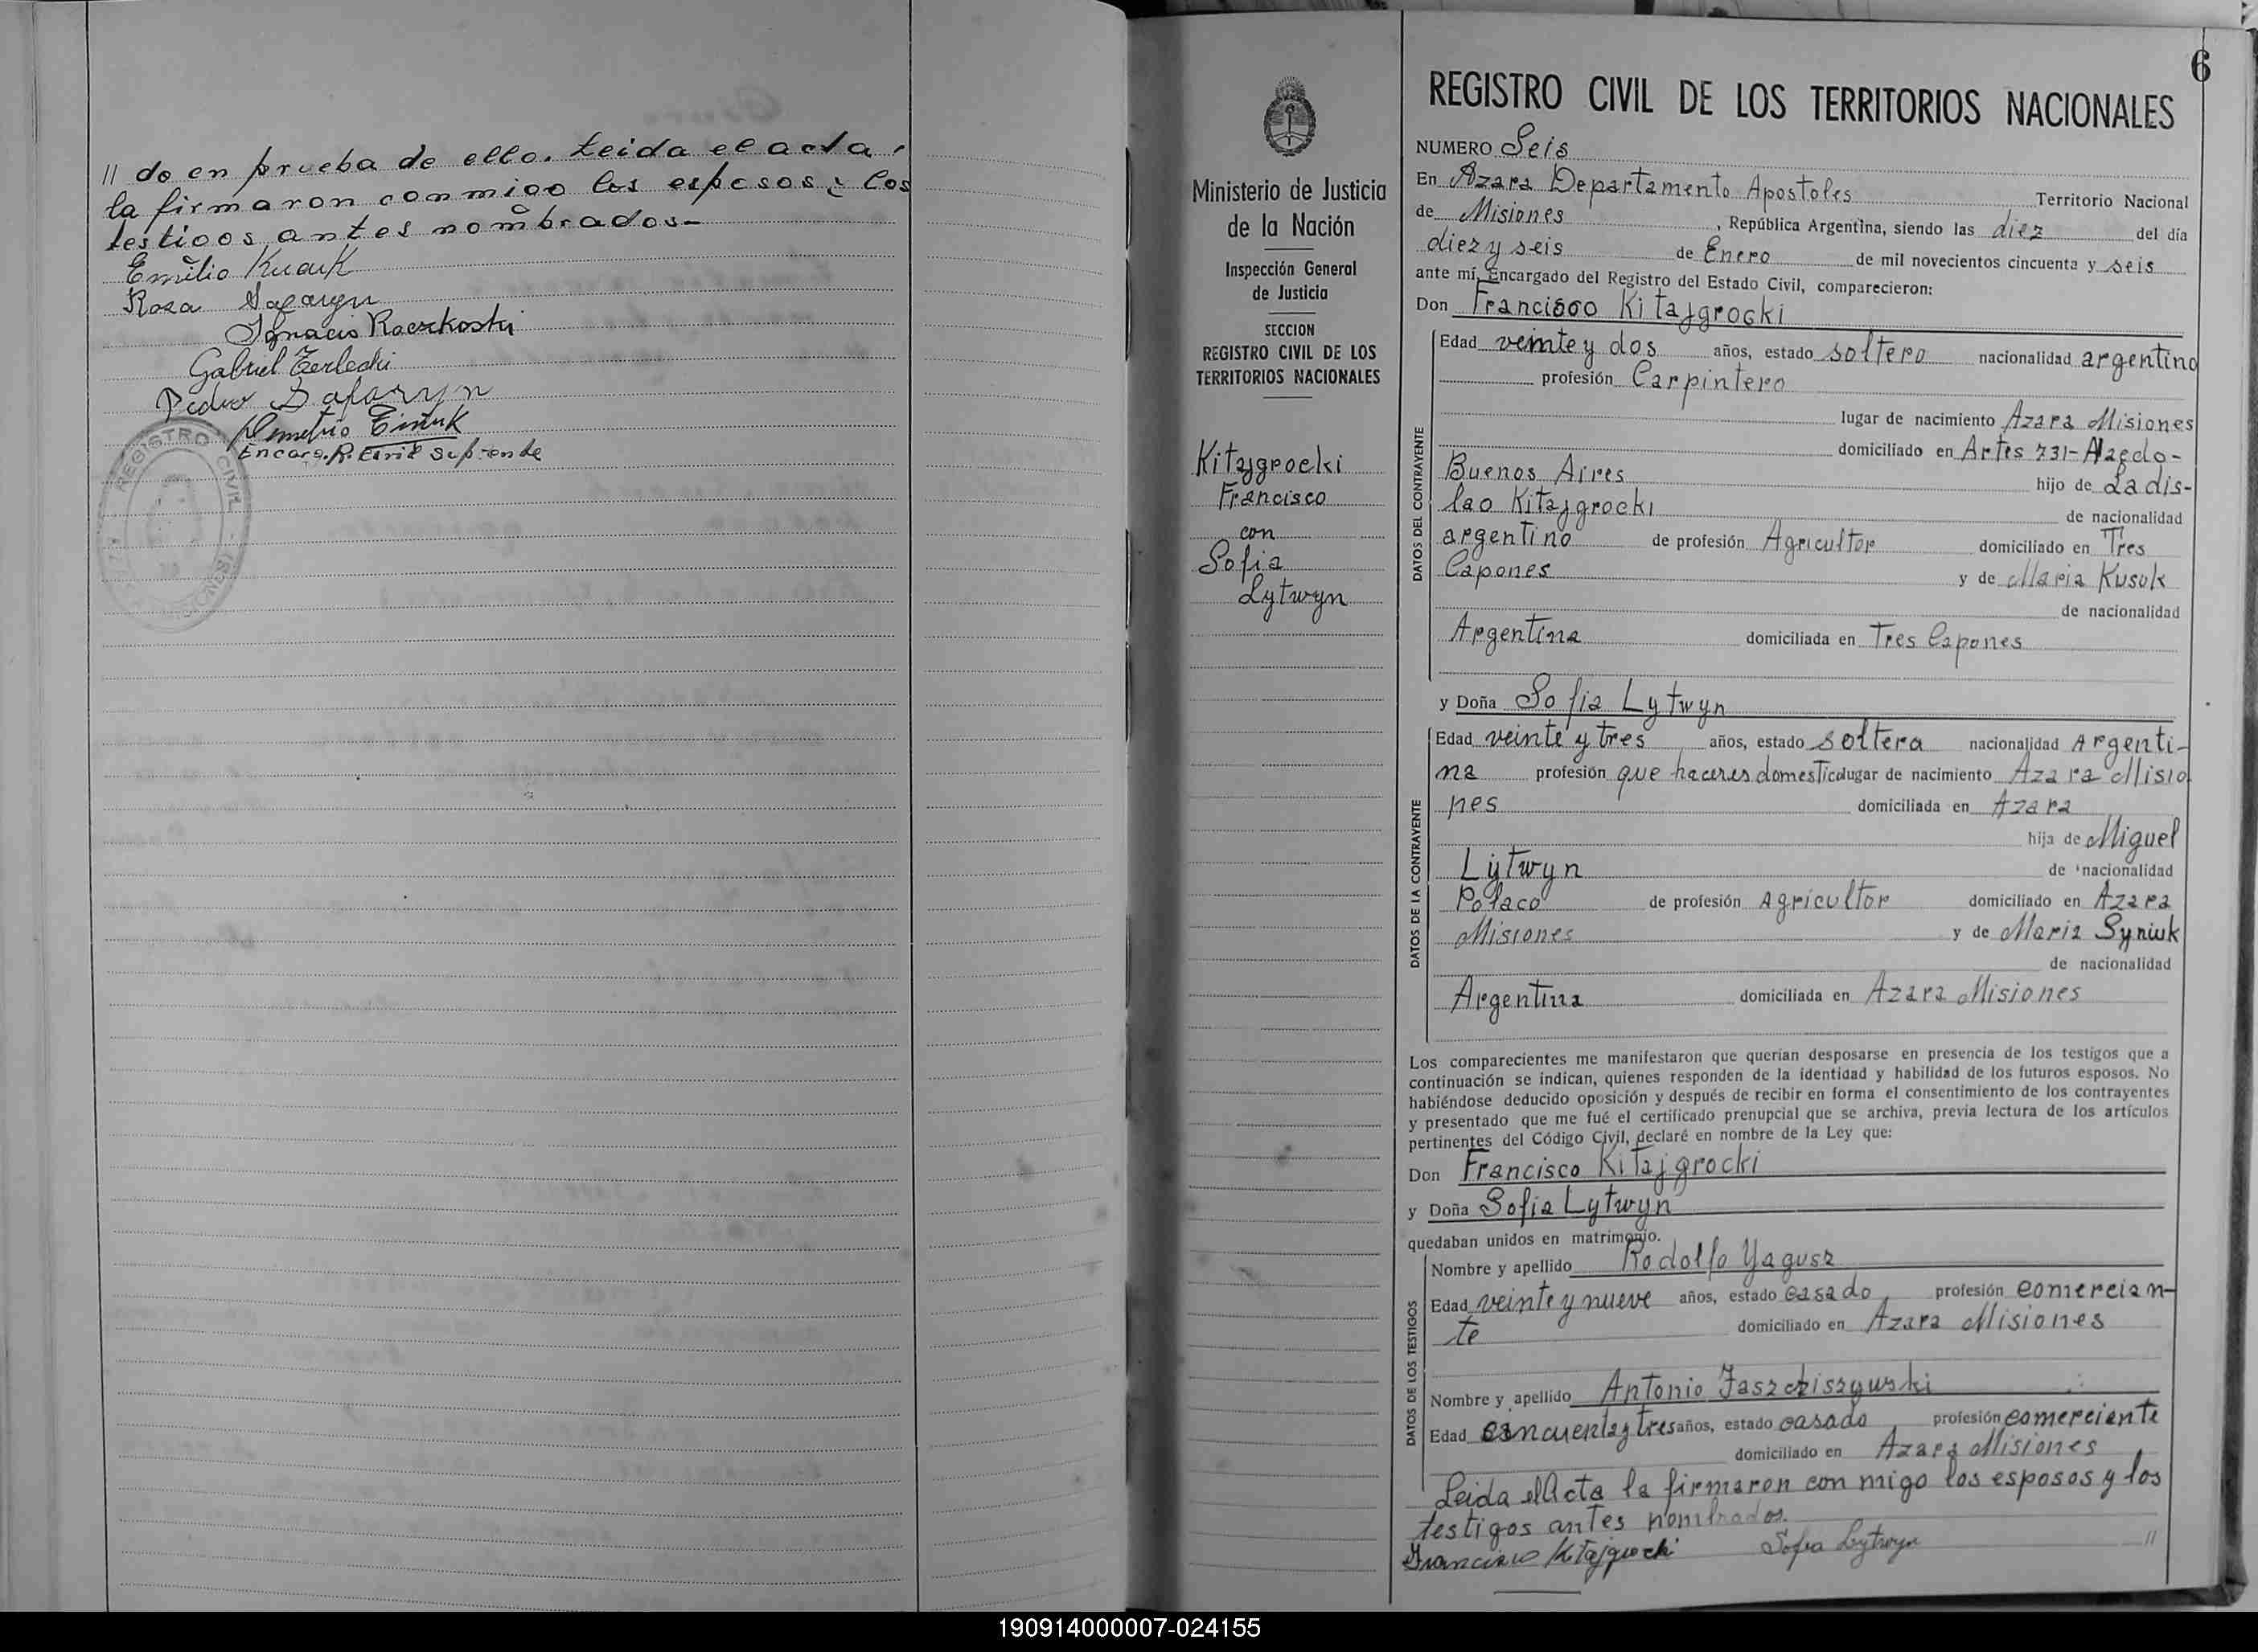 // do en prueba de ello. Leida el acta,
la firmaron conmigo los esposos y los
testigos antes nombrados.-
Emilio Kuauk
Rosa Safaryn
Ignacio Raczkoski
Gabriel Zerlecki
Pedro Safaryn
Demetrio
Encarg. R. Civil Suplente
REGISTRO CIVIL
(MISIONES)
Ministerio de Justicia
de la Nación
Inspección General
de Justicia
SECCION
REGISTRO CIVIL DE LOS
TERRITORIOS NACIONALES
Kitajgrocki
Francisco
con
Sofia
Lytwyn
6
REGISTRO CIVIL DE LOS TERRITORIOS NACIONALES
NUMERO Seis
En Azara Departamento Apostoles Territorio Nacional
de Misiones, República Argentina, siendo las diez del día
diez y seis de Enero de mil novecientos cincuenta y seis
ante mí, Encargado del Registro del Estado Civil, comparecieron:
Don Francisco Kitajgrocki
DATOS DEL CONTRAYENTE
Edad veinte y dos años, estado soltero nacionalidad argentino
profesión Carpintero
lugar de nacimiento Azara Misiones
domiciliado en Artes 731- Haedo-
Buenos Aires hijo de Ladis-
lao Kitajgrocki de nacionalidad
argentino de profesión Agricultor domiciliado en Tres
Capones y de Maria Kusuk
de nacionalidad
Argentina domiciliada en Tres Capones
y Doña Sofia Lytwyn
DATOS DE LA CONTRAYENTE
Edad veinte y tres años, estado soltera nacionalidad Argenti-
na profesión que haceres domestico lugar de nacimiento Azara Misio
nes domiciliada en Azara
hija de Miguel
Lytwyn de nacionalidad
Polaco de profesión Agricultor domiciliado en Azara
Misiones y de Maria Syniuk
de nacionalidad
Argentina domiciliada en Azara Misiones
Los comparecientes me manifestaron que querían desposarse en presencia de los testigos que a
continuación se indican, quienes responden de la identidad y habilidad de los futuros esposos. No
habiéndose deducido oposición y después de recibir en forma el consentimiento de los contrayentes
y presentado que me fué el certificado prenupcial que se archiva, previa lectura de los artículos
pertinentes del Código Civil, declaré en nombre de la Ley que:
Don Francisco Kitajgrocki
y Doña Sofia Lytwyn
quedaban unidos en matrimonio.
DATOS DE LOS TESTIGOS
Nombre y apellido Rodolfo Yagusz
Edad veinte y nueve años, estado casado, profesión comercian-
te domiciliado en Azara Misiones
Nombre y apellido Antonio Jaszcziszywski
Edad cincuenta y tres años, estado casado, profesión comerciante
domiciliado en Azara Misiones,
Leida el Acta la firmaron con migo los esposos y los
testigos antes nombrados.
Francisco Kitajgrocki Sofia Lytwyn //
190914000007-024155